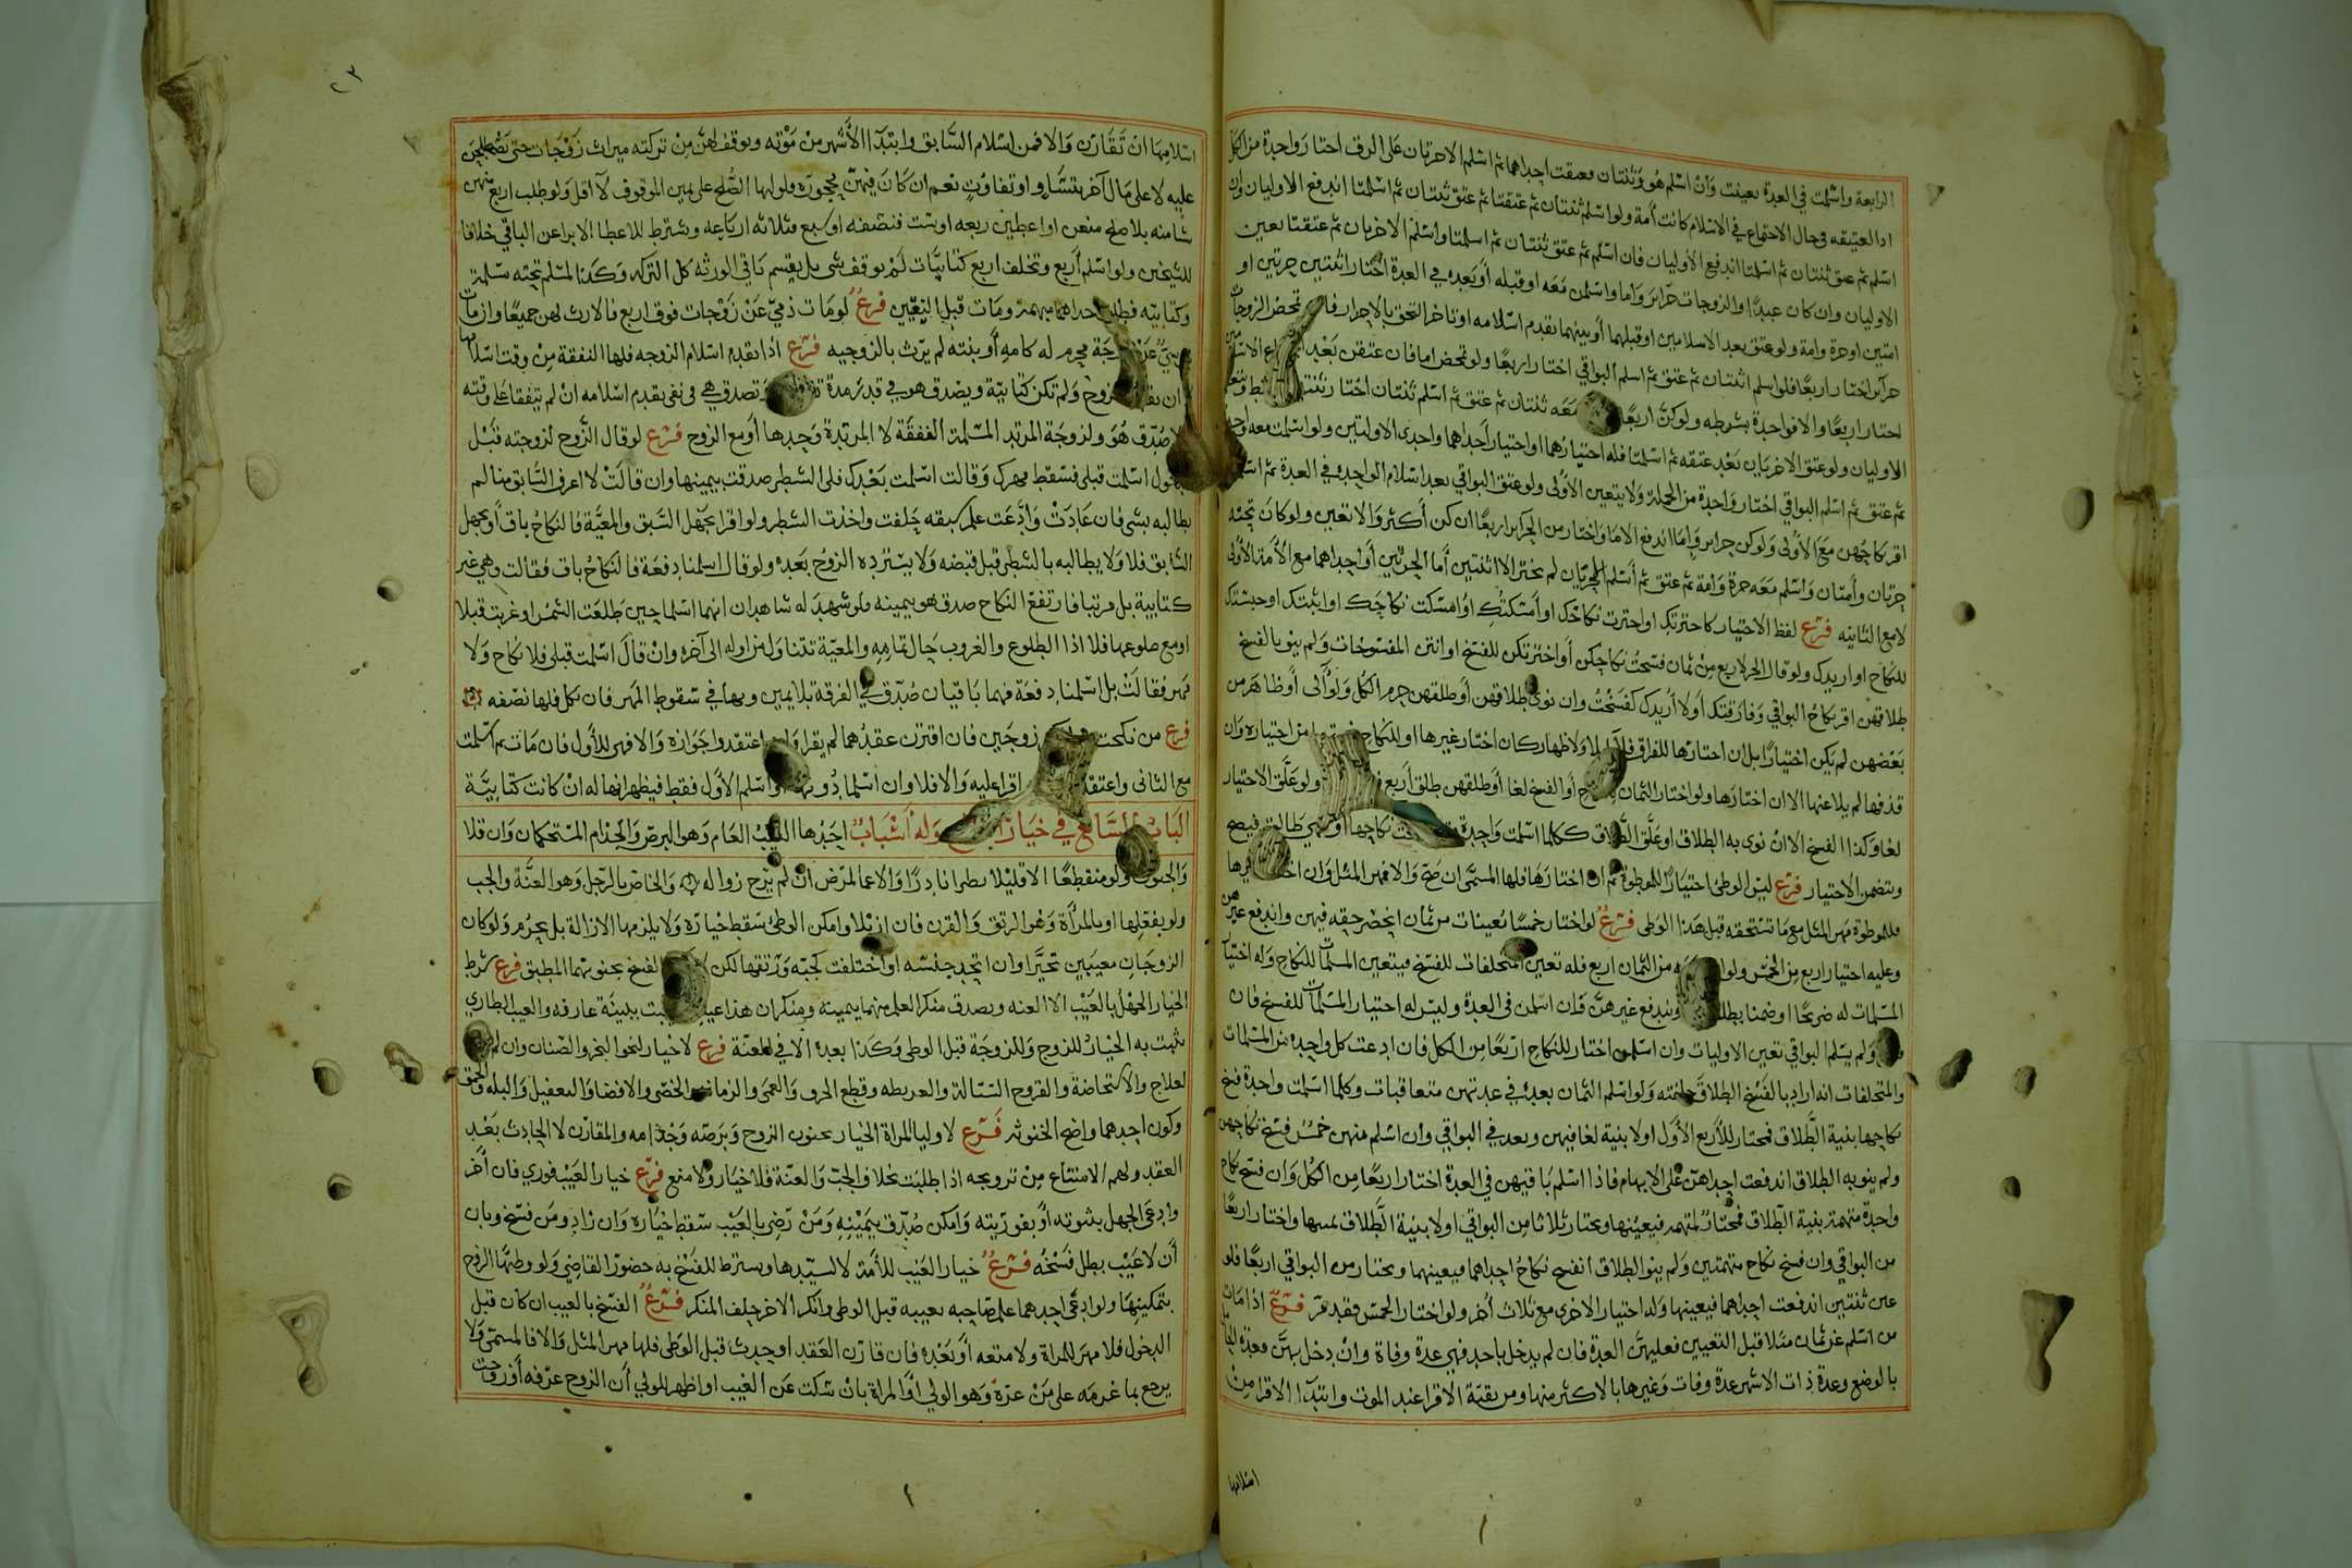 الرابعة واسلمت في العدة تعينت وان اسلم هو وثنتان فعتقت احداهما ثم اسلم الاخرتان على الرق اختار واحدة من الكل
اذ العتيقه في حال الاجتماع في الاسلام كانت أمة ولو اسلم ثنتان ثم عتقتا ثم عتق ثنتان ثم اسلمتا اندفع الاوليان وان
اسلم ثم عتق ثنتان ثم اسلمتا اندفع الأوليان فان اسلم ثم عتق ثنتان ثم اسلمتا واسلم الاخريان ثم عتقتا تعين
الاوليان وان كان عبدًا والزوجات حرائر وَاما واسلمن مَعَه او قبله أو بَعده في العدة اختار اثنتين حرتين او
امتين او حرة وامة ولو عتق بعد الاسلامين او قبلهما أو بينهما تقدم اسلامه او تاخر التحق بالاحرار فان تمحض الزوجات
حرآئر اختار اربعًا فلو اسلم اثنتان ثم عتق ثم اسلم البواقي اختار اربعًا ولو تمحض اما فان عتقن بَعْد
اختار اربعًا والا فواحدة بشرطه ولو كنّ اربعًا مَعَه ثنتان ثم عتق ثم اسلم ثنتان اختار ثنتين
الاوليان ولو عتق الاخريان بَعْد عتقه ثم اسلمتا فله اختيارهما او اختيار أحداهما واحدى الاوليتين ولو اسلمت معه واحدة
ثم عتق ثم اسلم البواقي اختار وَاحدة من الجملة وَلا يتعين الأولى ولو عتق البواقي بعد اسلام الواحدة في العدة ثم
اقر نكاحُهن مَعَ الأولى وَلو كن حرائر وَاِمَا اندفع الاما وَاختار من الحرآئر اربعًا ان كن أكثر وَالا تعين ولو كانَ تحته
حرتان وأمتان وَاسلم مَعَه حرة وَامة ثم عتق ثم أسلم الحرتان لم يختر الا اثنتين أما الحرتين أو احداهما مع الأمة الأولى
لا مع الثانيه فرع لفظ الاختيار كاخترتك او اخترت نكاحك او أمسكتك او امسكت نكاحك او اثبتك او حبستك
للنكاح او اريدك ولو قال الحر لاربع من ثمان فسختُ نكاحكن أو اخترتكن للفسخ او انتن المفسوخات وَلم ينو بالفسخ
طلاقهن اقر نكاحُ البواقي وَفارقتك أولا أريدك كفسختُ وان نوى طلاقهن أو طلقهن حرم الكل وَلو آلى أو ظاهر من
بَعْضهن لم يَكن اختيارًا بل ان اختارَها للفراق فلا وَلا ظهار كان اختار غيرها او للنكاح من اختياره وَان
قذفها لم يلاعنها الا ان اختارَها ولو اختار الثمان أو الفسخ لغا أو طلقهن طلق أربع ولو علّق الاختيار
لغا وَكذا الفسخ الا ان نوى به الطلاق او علّق الطلاق ككلما اسلمت وَاحدة نكاحها فهي طالق فيصح
ويتضمن الاختيار فرع ليس الوطئ اختيارًا للموطوة ثم ان اختارَها فلها المسمّى ان صحّ وَالا فمهر المثل وَان
فللموطوة مهر المثل مع ما تستحقه قبل هذا الوطى فرع لو اختار خمسًا تعينات من ثمان انحصر حقه فيهن واندفع غيرهن
وعليه اختيار اربع من الخمس ولو من الثمان اربع فله تعين المتخلفات للفسخ فيتعين المسلمات للنكاح وَله اختيار
المسلمات له صَريحًا او ضمنا بطلاق ويندفع غيرهنّ فان اسلمن في العدة وليس له اختيار المسلمات للفسخ فان
وَلم يسلم البواقي تعين الاوليات وان اسلمن اختار للنكاح اربَعًا من الكل فان ادعت كل واحدة من المسلمات
والمتخلفات انه اراد بالفسْخ الطلاق حلفته وَلو اسلم الثمان بعده في عدتهن متعاقبات وكلما اسلمت واحدة فسخ
نكاحها بنية الطلاق فمختار للأربع الأوَّل او لا بنية لغا فيهن وبعد في البواقي وان اسلم منهن خمسٌ فسخ نكاحهن
ولم ينو به الطلاق اندفعت احداهنّ على الابهام فاذا اسلم بَاقيهن في العدة اختار اربعًا من الكل وَان فسخ نكاح
واحدة متهمة بنية الطلاق فمختارٌ لمتهمه فيعينها ويختار ثلاثا من البواقي او لا بنية الطلاق واختار اربعًا
من البواقي وان فسخ نكاح متهمتين وَلم ينو الطلاق انفسخ نكاحُ احداهما فيعينهما ويختار من البواقي اربعًا فلو
عين ثنتين اندفعت احداهما فيعينها وَله اختيار الاخرى مع ثلاث أخر ولو اختار الخمس فقد مرّ فرع اذا مات
من اسلم عن ثمان مثلا قبل التعيين فعليهنّ العدة فان لم يدخل باحد فهي عدة وفاة وان دخل بهنّ فعدة الحامل
بالوضع وعدة ذات الاشهر عدة وفات وَغيرها بالاكثر منها ومن بقية الاقرا عند الموت وابتدآ الاقرا من
اسلامها
٢٣
اسلامها انْ تقَارن وَالا فمن اسْلام السَّابق وابتدآ الأَشهر من مَوْته ويوقف لهنّ مِنْ تركته ميراث زَوْجَات حتى يصطلحن
عليه لا على مَال آخر بتسَاوٍ او تفاوُتٍ نعم ان كانَ فيهنّ محجورة فلوليها الصُّلح على ثمن الموقوف لا أقل وَلو طلب اربع منهن
شيئا منه بلا صلح منعن او اعطين ربعه او ست فنصفه او سبع فثلاثة ارباعه ويشترط للاعطا الابرا عن الباقي خلافا
للشيخين ولو اسْلم أربع وتخلف اربع كتابيَّات لَمْ يوقف شى بل يقسم بَاقي الورثه كل التركه وَكذا المسلم تحته مسلمة
وكتابيّه فطلق احداهما مبهمة ومَات قبل التعيين فرعٌ لو مَات ذميّ عَنْ زَوْجات فوق اربع فالارث لهن جميعًا وان مات
عَن زوجَة محرم له كامهِ أو بنته لم يرَث بالزوجيه فرع اذا تقدم اسلام الزوجه فلها النفقة مِنْ وقت اسلامها
ان الزوج وَلم تكن كتابيّة ويصدق هو في قدر مدة وتصدق هي في نفى تقدم اسْلامه انْ لم يتفقا على وقته
صُدّق هُوَ ولزوجَة المرتد المسلمة النفقَة لا المرتدة وَحدها أو مع الزوج فرع لو قال الزَّوج لزوجته قبْل
الدخول اسْلمت قبلى فسَقط مهرك وَقالت اسْلمت بَعْدك فلى الشطر صدقت بيمينها وان قالتْ لا اعرف السَّابق منا لم
يطالبه بشى فان عَادتْ وَادَّعَت علم سَبقه حَلفت واخذت الشطر ولو اقرا بجَهْل السَّبق والمعيَّة فالنكاحُ باقٍ أو بجهل
السَّابق فلا وَلا يطالبه بالشطر قبل قبضه وَلا يسْتردِه الزوجُ بَعده ولو قال اسلمنا دفعَة فالنكاحُ باق فقالت وهي غير
كتابيّة بل مرتبا فارتفعَ النكاح صدق هو بيمينه ولو شهدَ له شاهدان انهما اسلما حين طَلعَت الشمْس او غربت قبلا
او مع طلوعها فلا اذ الطلوع والغروب حَال تمامهِ والمعيّة تتناوَل من اوله الى آخره وانْ قالَ اسْلمت قبلى فلا نكاح وَلا
مَهر فقالتْ بل اسْلمنا دفعَة فهما بَاقيان صُدّق في الفرقة بلا يمين وبها في سقوط المَهر فان نكل فلها نصْفه
فرع من نكحت زوجَين فان اقترن عقدُهما لم يقرا وَان اعتقدوا جَوازه وَالا فهى للأول فان مَات ثم اسْلمت
مع الثانى واعتقد اقرا عليه وَالا فلا وان اسْلما دُونها او اسْلم الأوَّل فقط فيظهر انها له انْ كانت كتابيَّة
البَابُ السَّابع في خيَار النكاح وَله أسْبَابٌ احَدُها العيب العَام وَهو البرص وَالجُذام المستحكمان وَان قلا
وَالجنون وَلو منقطعًا الا قليْلا يطرا نادِرًا وَالاعما لمرَض ان لم يُرْج زواله وَالخاصّ بالرَّجل وَهو العنَّة وَالجب
ولو بفعْلها او بالمرْأة وَهو الرتق وَالقرن فان ازيلا وامكن الوطئ سَقط خيَاره وَلا يلزمها الازالة بل يحرُم وَلو كان
الزوجَان معيبَين تخيَّرا وان اتحد جنسْه او اختلفت كجبّه وَرَتقها لكن الفسْخ بجنونهما المطبق فرع شرط
الخيار الجهْل بالعَيْب الا العنه ويصدق منكر العلم منهما بيمينه ومنكر ان هذا عيب ببيِّنَة عارفه والعيب الطاري
يثبت به الخيارُ للزوج وَللزوجَة قبل الوطى وَكذا بعده الا في العنّة فرع لا خيار لنحو البخر والصّنان وان
لعلاج والاسْتحَاضة والقروح السَّيالة والعديطه وقطع الحرف وَالعمى والزمانه والخصى والافضا وَالتعقيل وَالبله وَالحمق
وكون احدهما واضح الخنوثه فَرْع لاوليا المراة الخيار بجنون الزوج وَبرَصه وَجُذَامه والمقارن لا الحادث بَعْد
العقد ولهم الامتناع مِنْ تزويجه اذا طلبَت بخلاف الجبّ وَالعنّة فلا خيَار وَلا منع فرْع خيار العَيْب فوري فان أخّر
وادعَى الجهل بثبوته أو بفوريّته وَامكن صُدّق بيَمينِهِ وَمَنْ رَضِي بالعَيْب سَقط خيَاره وَان زَاد ومَن فسَخ وبان
أن لا عَيْب بطل فسْخُه فَرْعٌ خيار العَيْب للأمَة لا لسيّدها ويشترط للفسْخ به حضورُ القاضِي وَلو وطئها الزوج
بتمكينهَا ولو ادعَى احدهما على صَاحبه بعيبه قبل الوطى وانكر الاخر حلف المنكر فرْعٌ الفسخ بالعيب ان كان قبل
الدخول فلا مهر للمراة ولا متعه أو بَعْده فان قارَن العَقد او حدث قبل الوَطى فلها مهر المثل وَالا فالمسمّى وَلا
يرجع بما غرمَه على مَنْ غرّه وَهو الولي او المراة بانْ سَكت عَن العَيب او اظهر للولي أن الزوج عرَفه أو زوجت